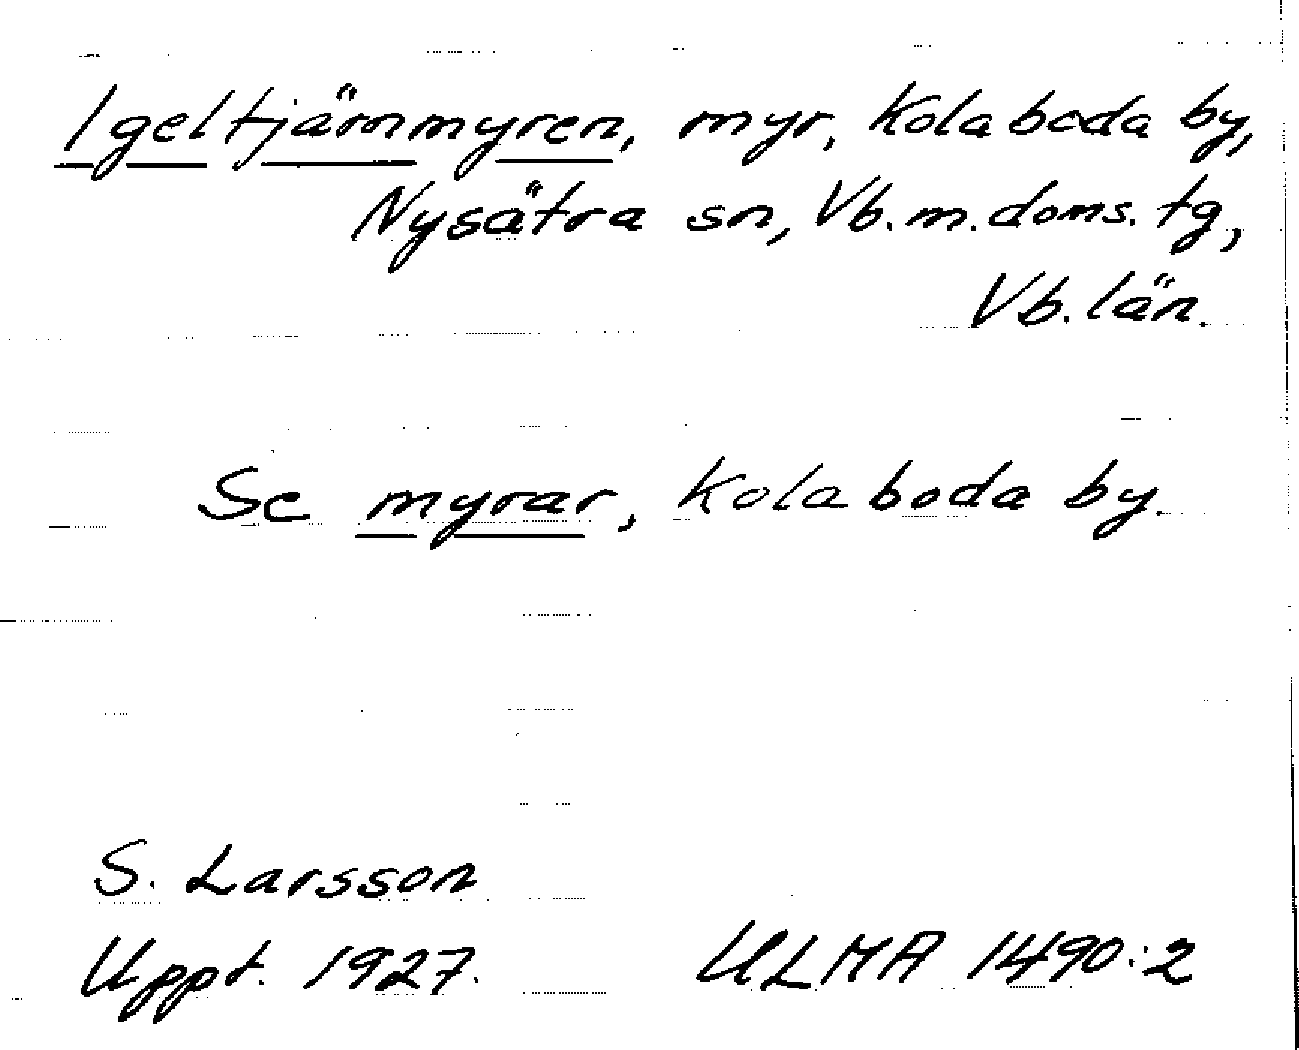 Igeltjärnmyren, myr, Kolaboda by,
Nysätra sn, Vb.m.doms.tg,
Vb.län.
Se myrar, Kolaboda by.
S. Larsson
Uppt. 1927.
ULMA 1490:2